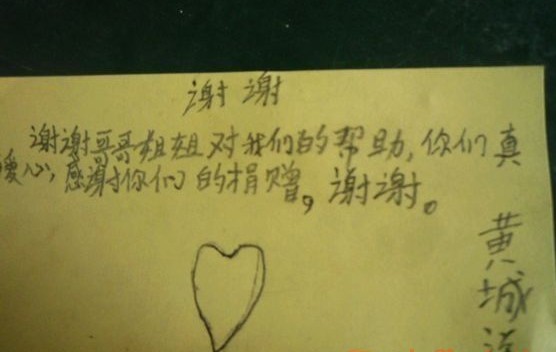 谢谢
谢谢哥哥姐姐对我们的帮助,你们真
爱心,感谢你们的捐赠,谢谢。
黄城